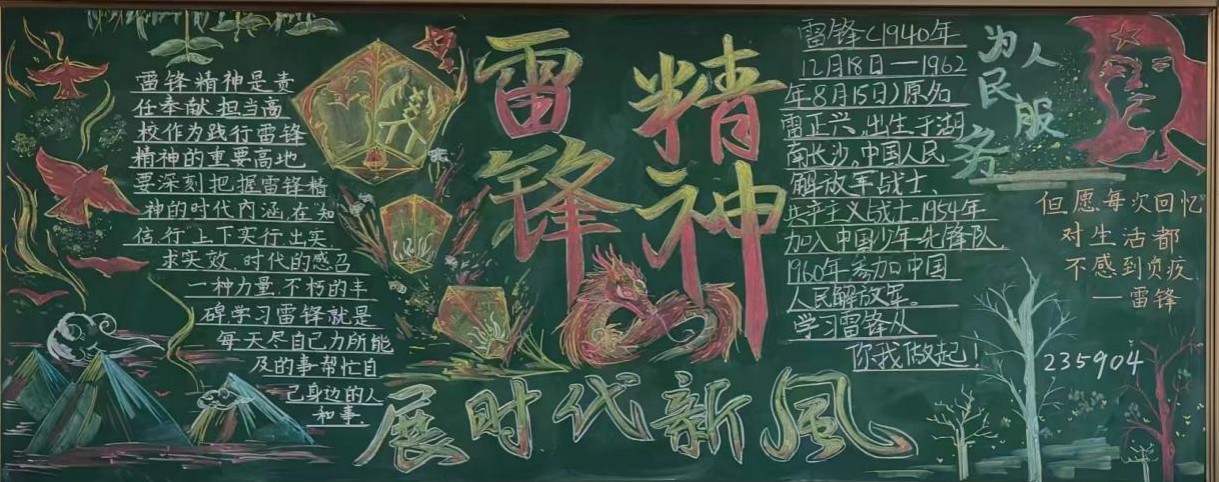 雷锋精神是责
任奉献.担当高
校作为践行雷锋
精神的重要高地.
要深刻把握雷锋精
神的时代内涵.在"知
信行"上下实行.出实.
求实效.时代的感召
一种力量.不朽的丰
碑学习雷锋就是
每天尽自己力所能
及的事帮忙自
己身边的人
和事.
雷锋
精神
展时代新风
雷锋(1940年
12月18日—1962
年8月15日)原名
雷正兴.出生于湖
南长沙.中国人民
解放军战士、
共产主义战士.1954年
加入中国少年先锋队.
1960年参加中国
人民解放军。
学习雷锋从
你我做起!
为人民服务
但愿每次回忆
对生活都
不感到负疚
—雷锋
235904